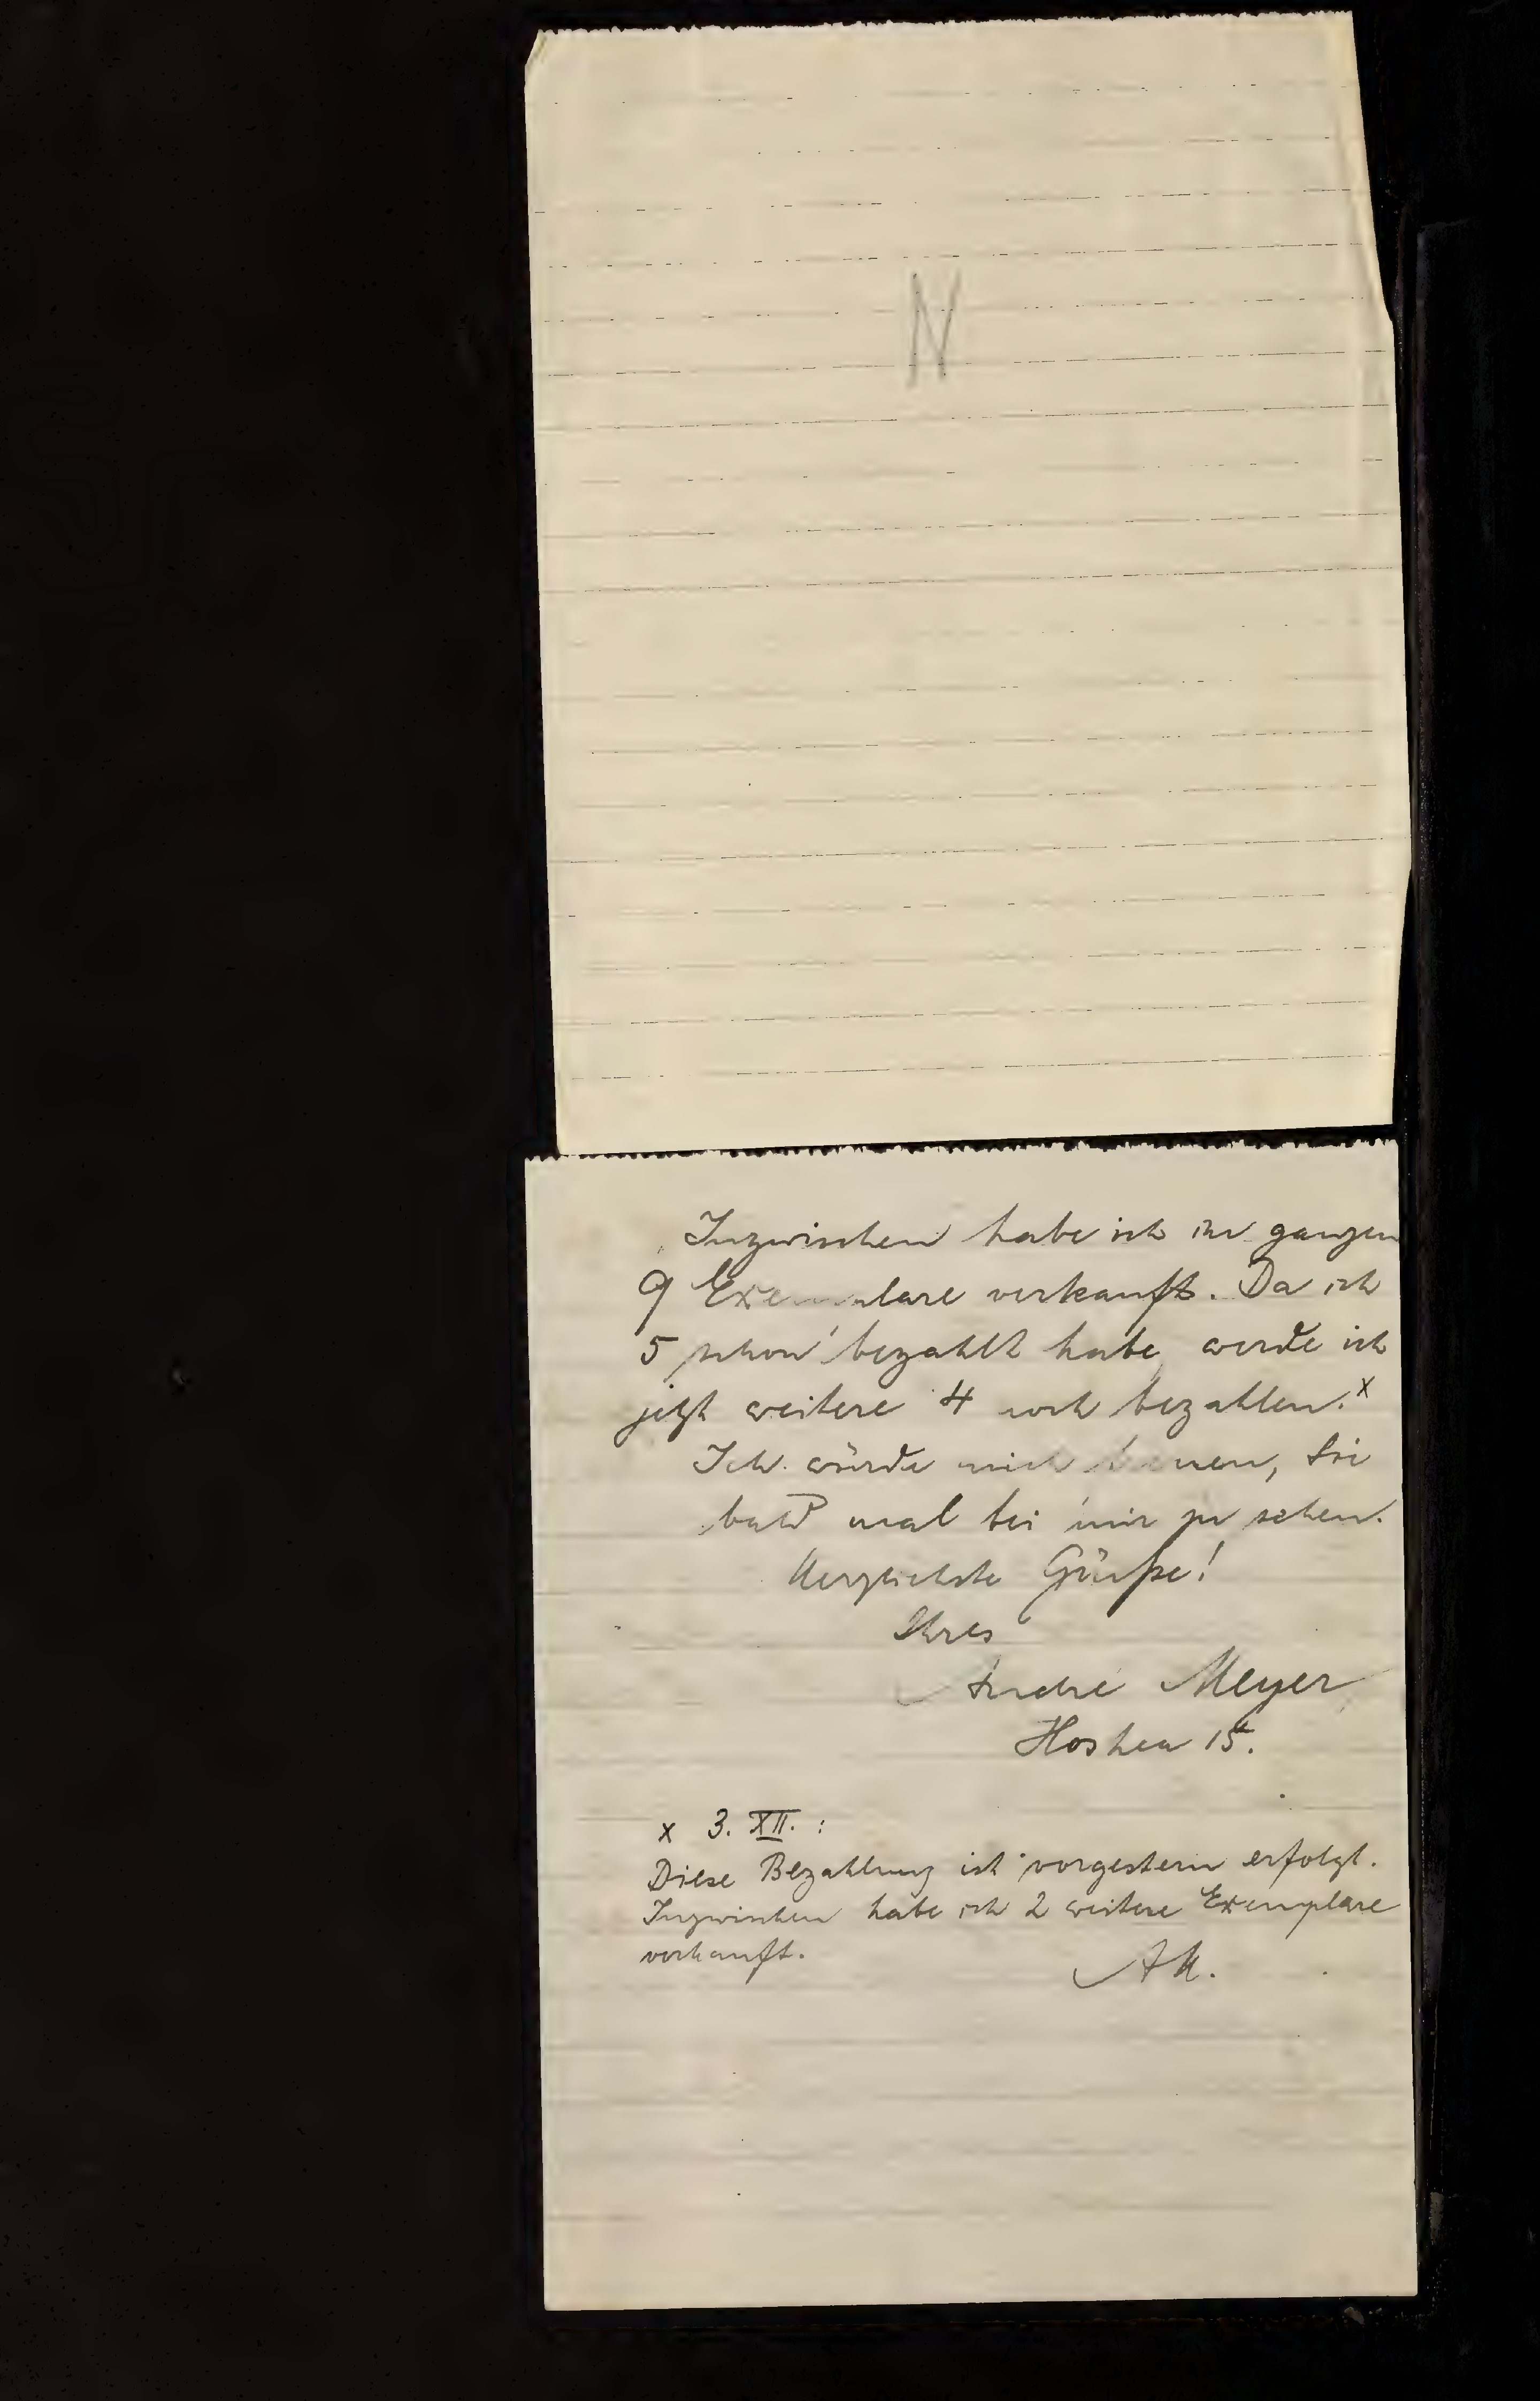 N
Inzwischen habe ich im ganzen
9 Exemplare verkauft. Da ich
5 schon bezahlt habe, werde ich
jetzt weitere 4 noch bezahlen.x
Ich würde mich freuen, Sie
bald mal bei mir zu sehen.
Herzlichste Grüße!
Ihres
André Meyer
Hoshea 15.
x 3. XII. :
Diese Bezahlung ist vorgestern erfolgt.
Inzwischen habe ich 2 weitere Exemplare
verkauft. AM.